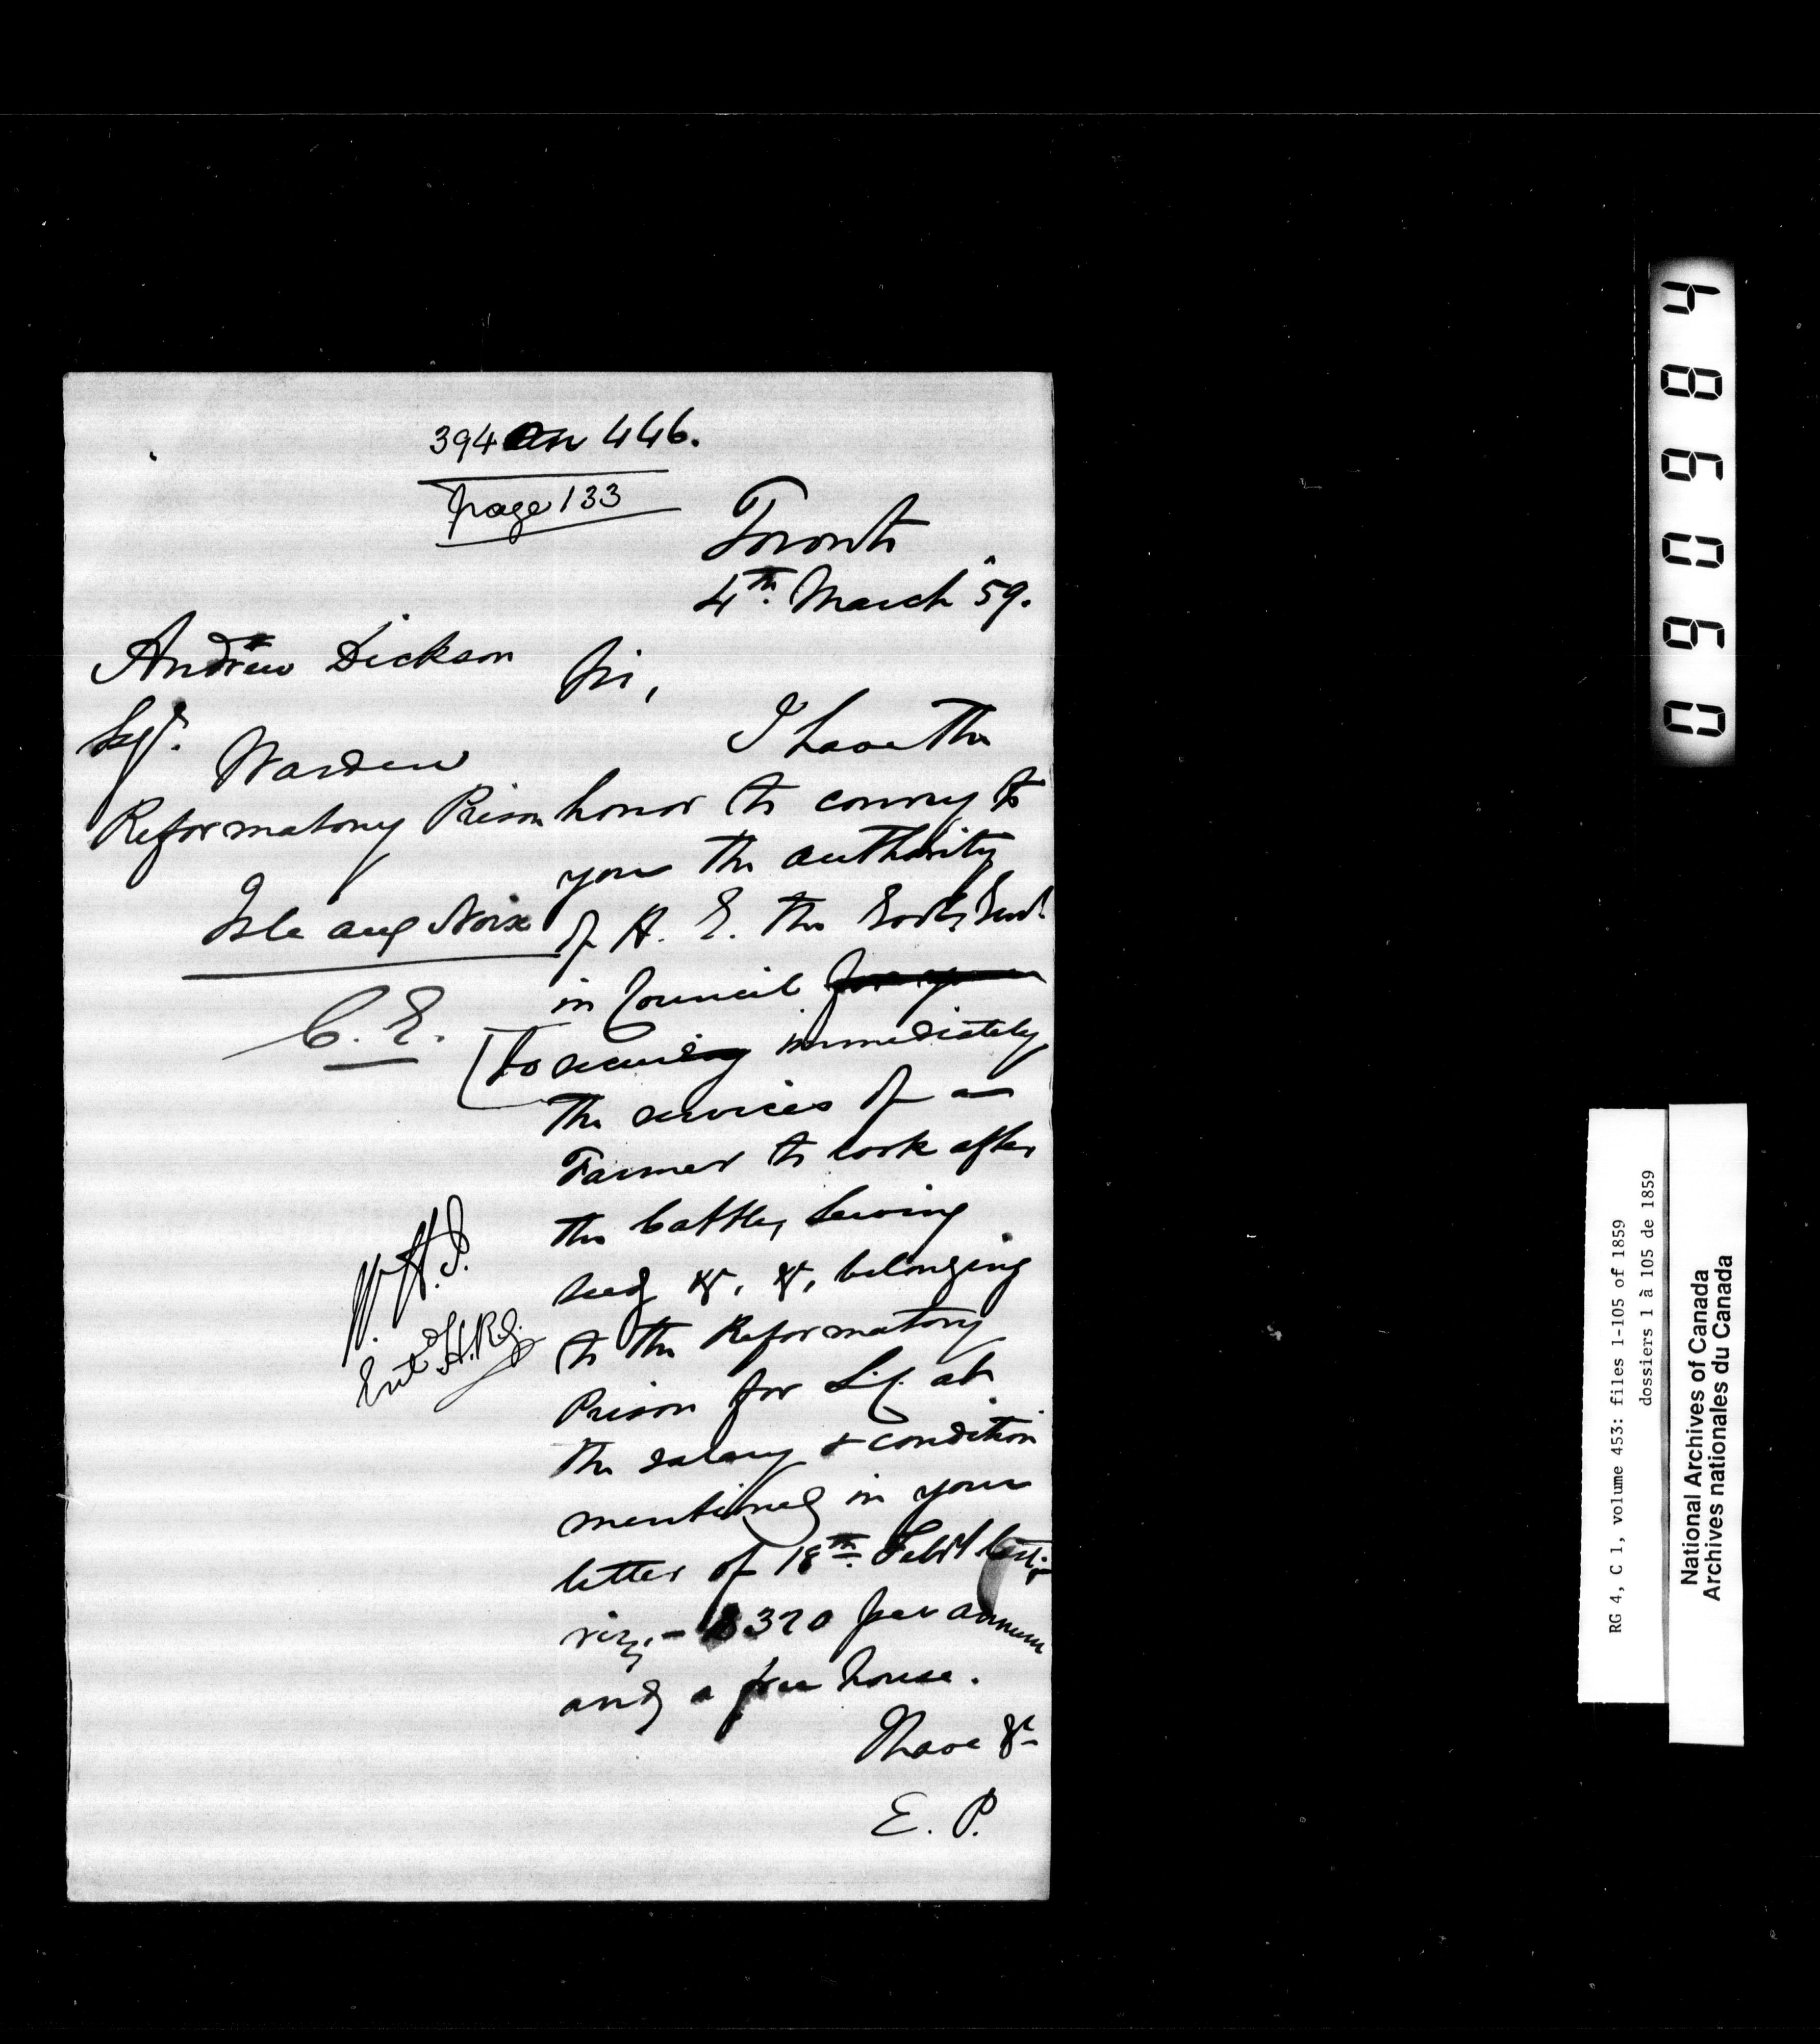 394 on 446.
page 133
Toronto
4th. March '59.
Andrew Dickson
Esqr.
Warden
Reformatory Prison
Isle aux Noix
C. E.
Sir,
I have the
honor to convey to
you the authority
of H. E. the
in Council for you
to securing immediately
the services of a
Farmer to look after
the Cattle, Sewing
seed &c, &c, belonging
to the Reformatory
Prison for L.C. at
the salary & condition
mentioned in your
letter of 18th. Feby last
viz; - $320 per annum
and a free house.
I have &c
E. P.
W. H. J.
Entd
RG 4, C 1, volume 453: files 1-105 of 1859
dossiers 1 à 105 de 1859
National Archives of Canada
Archives nationales du Canada
090984